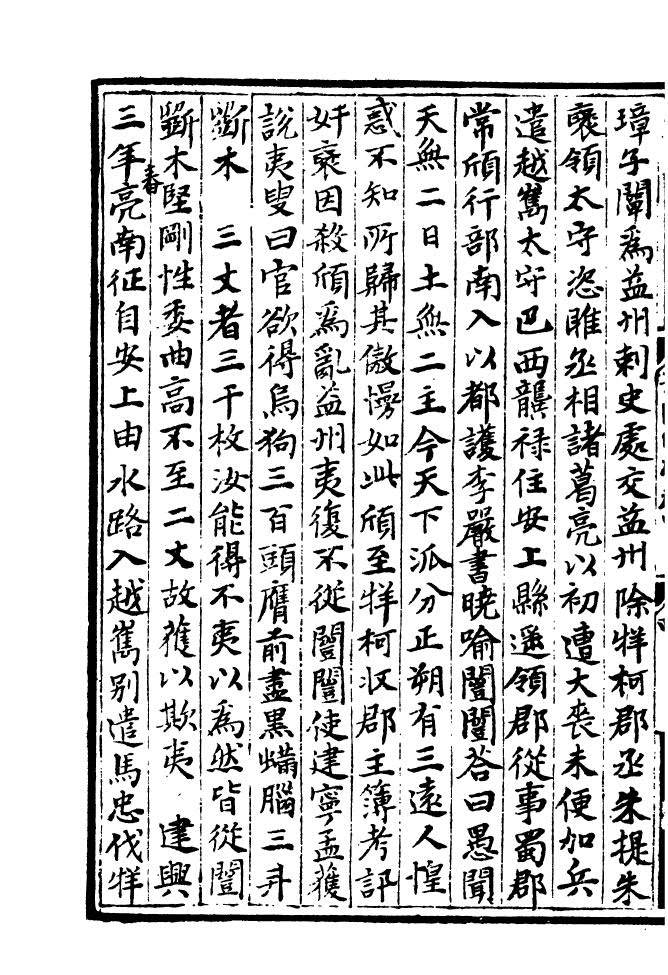 璋子闡爲益州刺史處交益州除牂柯郡丞朱提朱
褒領太守恣睢丞相諸葛亮以初遭大喪未便加兵
遣越嶲太守巴西龔祿住安上縣遥領郡從事蜀郡
常頎行部南入以都護李嚴書曉喻闓闓荅曰愚聞
天無二日土無二主今天下派分正朔有三遠人惶
惑不知所歸其傲慢如此頎至牂柯収郡主簿考訊
奸褒因殺頎爲亂益州夷復不從闓闓使建寧孟獲
說夷叟曰官欲得烏狗三百頭膺前盡黑螨腦三斗
斷木 三丈者三千枚汝能得不夷以爲然皆從闓
斷木堅剛性委曲高不至二丈故獲以欺夷 建興
三年春亮南征自安上由水路入越嶲别遣馬忠伐牂